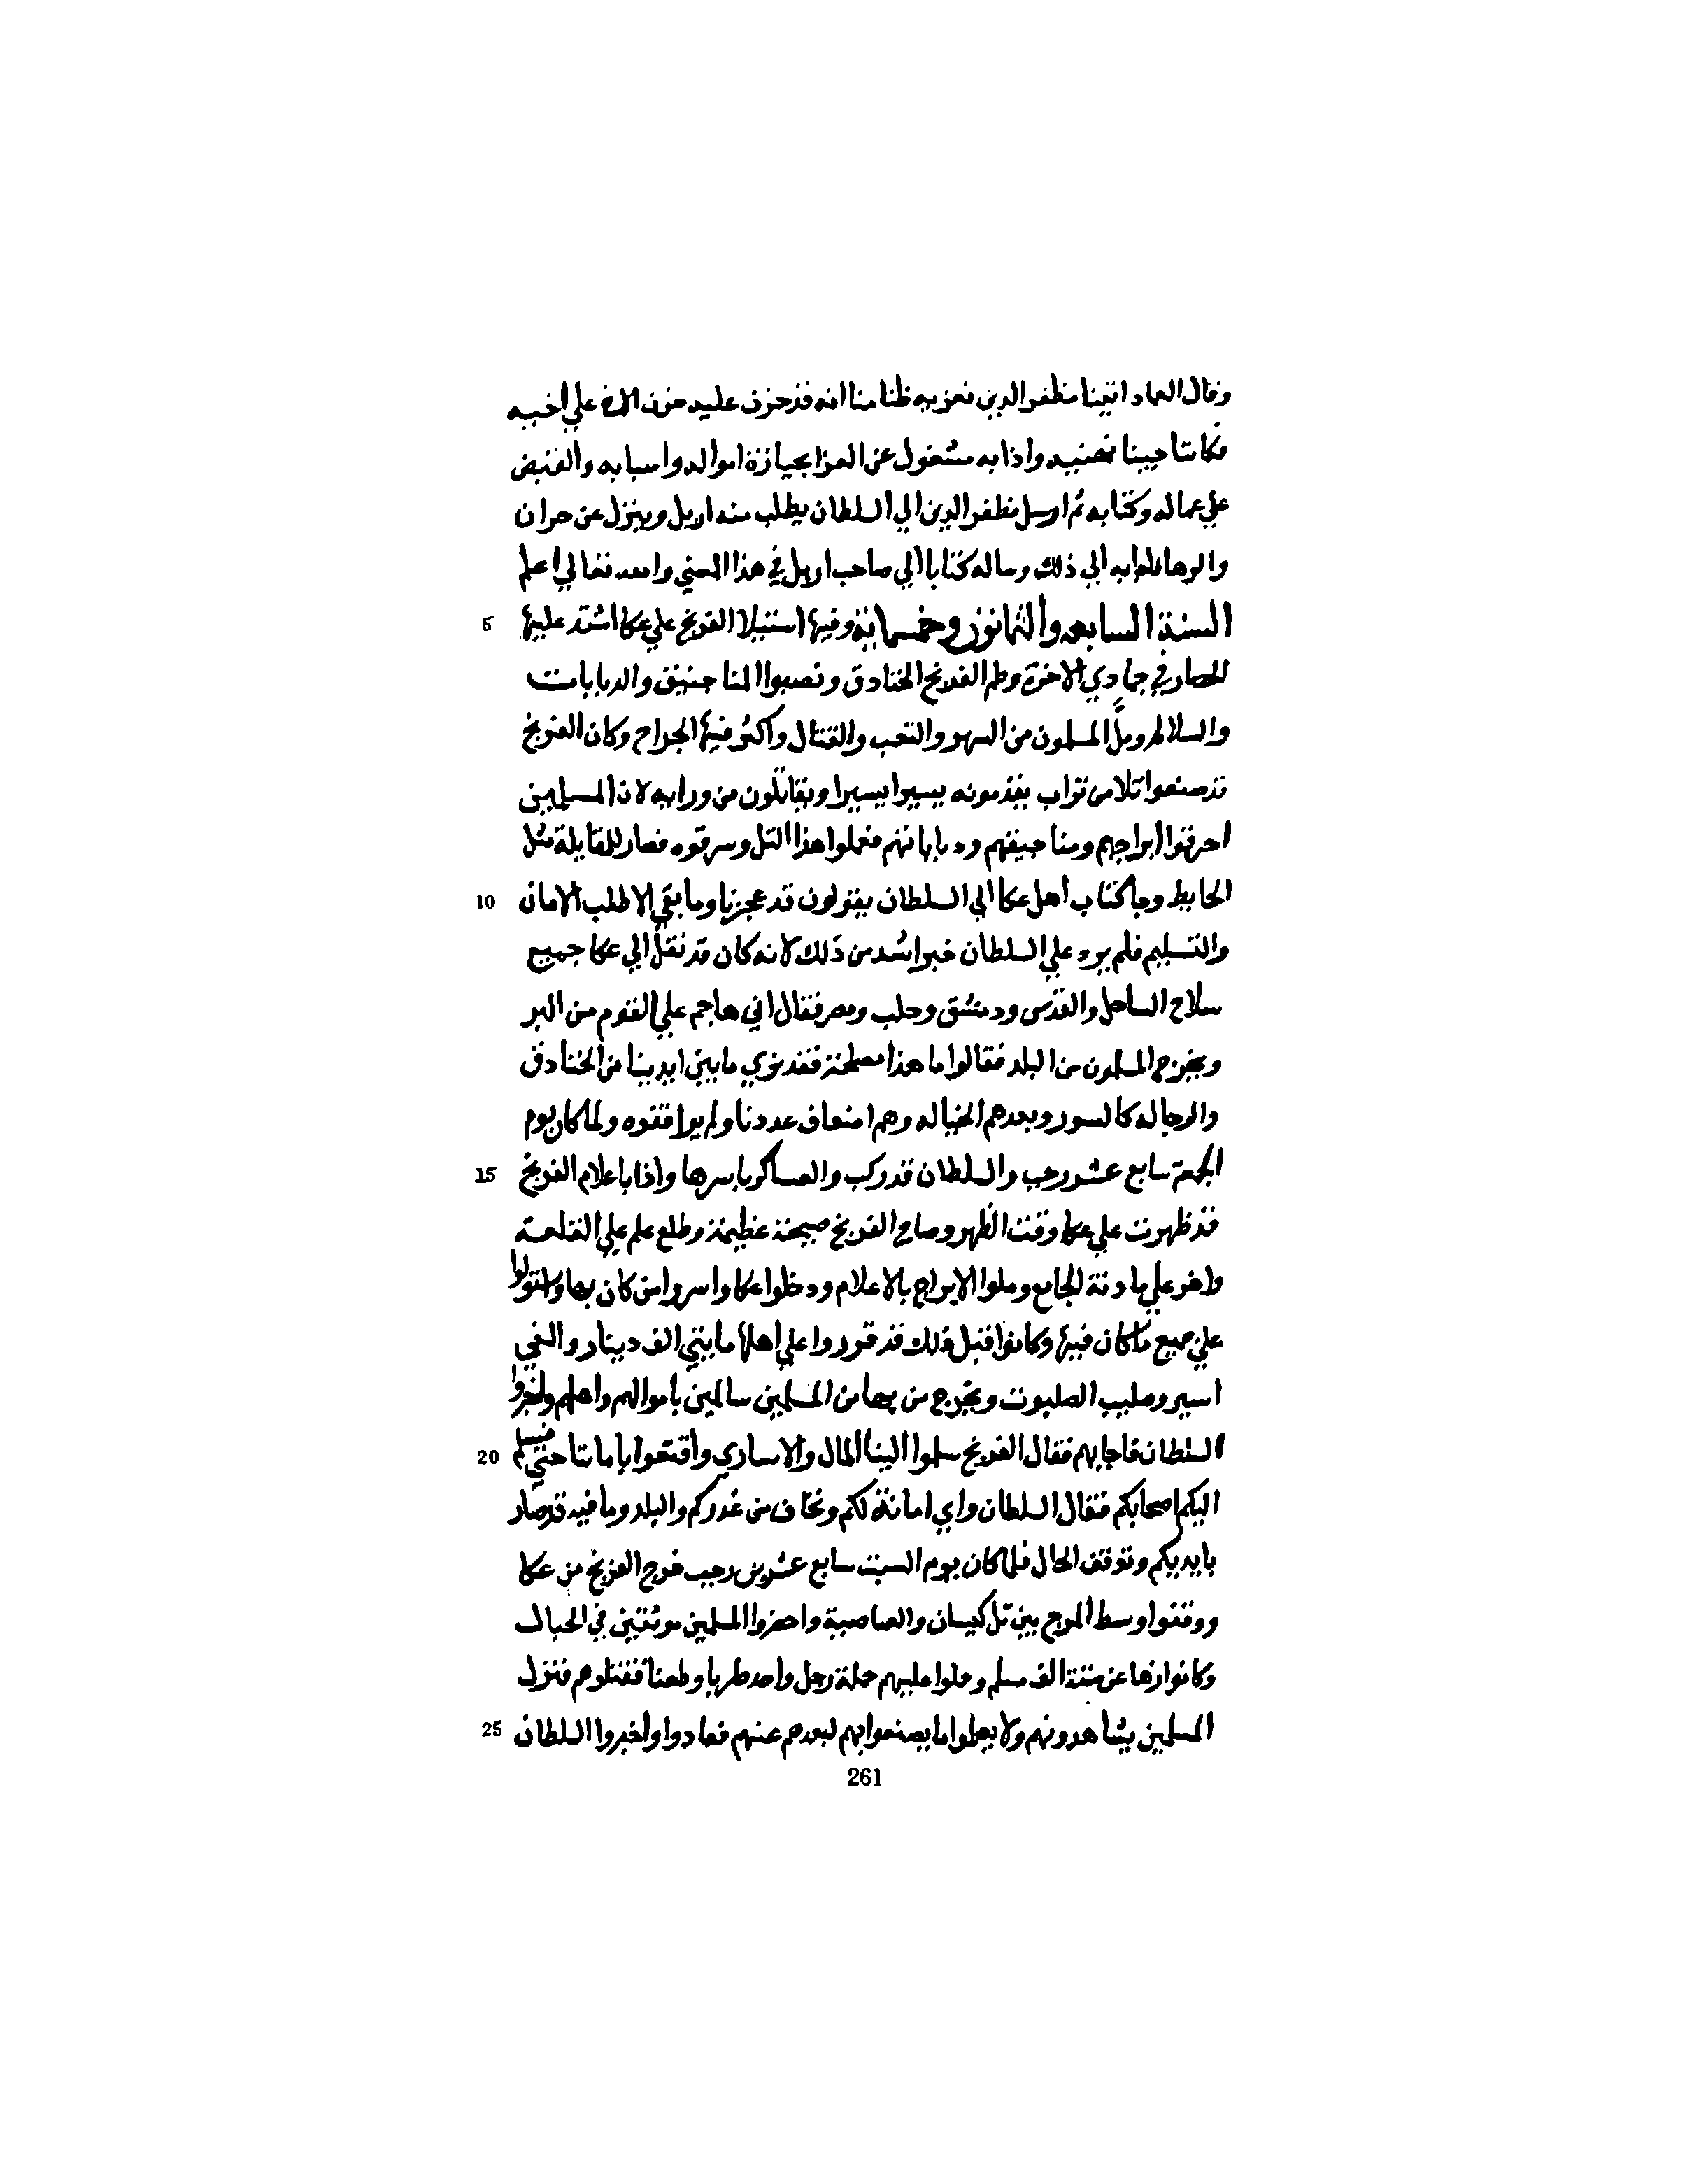 وقال العماد اتينا مظفر الدين نعزيه ظنا منا انه قد حزن عليه حزن الاخ علي اخيه
فكاننا جينا نهنيه واذا به مشغول عن العزا بحيازة امواله واسبابه والقبض
علي عماله وكتابه ثم ارسل مظفر الدين الي السلطان يطلب منه اربل وينزل عن حران
والرها فاجابه الي ذلك وساله كتابا الي صاحب اربل في هذا المعني والله تعالي اعلم
السنة السابعه والثمانون وخمسماية وفيها استيلا الفرنج علي عكا اشتد عليها 5
الحصار في جمادي الاخرة وطم الفرنج الخنادق ونصبوا المناجنيق والدبابات
والسلالم ومل المسلمون من السهر والتعب والقتال واكثر فيها الجراح وكان الفرنج
قد صنعوا تلا من تراب يقدمونه يسيرا يسيرا ويقاتلون من ورايه لان المسلمين
احرقوا ابراجهم ومناجيقهم ودباباتهم فعملوا هذا التل وسرقوه فصار للمقابلة مثل
الحايط وجا كتاب اهل عكا الي السلطان يقولون قد عجزنا وما بقي الا طلب الامان 10
والتسليم فلم يرد علي السلطان خبرا اشد من ذلك لانه كان قد نقل الي عكا جميع
سلاح الساحل والقدس ودمشق وحلب ومصر فقال اني هاجم علي القوم من البر
ويخرج المسلمون من البلد فقالوا ما هذا مصلحة فقد نري ما بين ايدينا من الخنادق
والرجاله كالسور وبعدهم الخياله وهم اضعاف عددنا ولم يوافقوه ولما كان يوم
الجمعة سابع عشر رجب والسلطان قد ركب والعساكر باسرها واذا باعلام الفرنج 15
قد ظهرت علي عكا وقت الظهر وصاح الفرنج صيحة عظيمة وطلع علم علي القلعة
واخر علي مادنة الجامع وملوا الابراج بالاعلام ودخلوا عكا واسروا من كان بها واستولوا
علي جميع ما كان فيها وكانوا قبل ذلك قد قرروا علي اهلها مايتي الف دينار والفي
اسير وصليب الصلبوت ويخرج من بها من المسلمين سالمين باموالهم واهلهم واخبروا
السلطان فاجابهم فقال الفرنج سلموا الينا المال والاساري واقنعوا باماننا حتي نسلم 20
اليكم اصحابكم فقال السلطان واي امانة لكم ونخاف من غدركم والبلد وما فيه قد صار
بايديكم وتوقف الحال فلما كان يوم السبت سابع عشرين رجب خرج الفرنج من عكا
ووقفوا وسط المرج بين تل كيسان والعياضية واحضروا المسلمين موثقين في الحبال
وكانوا زها عن ستة الف مسلم وحملوا عليهم حملة رجل واحد ضربا وطعنا فقتلوهم فنزل
المسلمين يشاهدونهم ولا يعلموا ما يصنعوا بهم لبعدهم عنهم فعادوا واخبروا السلطان 25
261